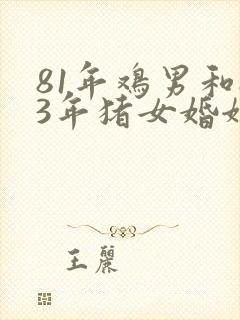 81年鸡男和
3年猪女婚
王麗